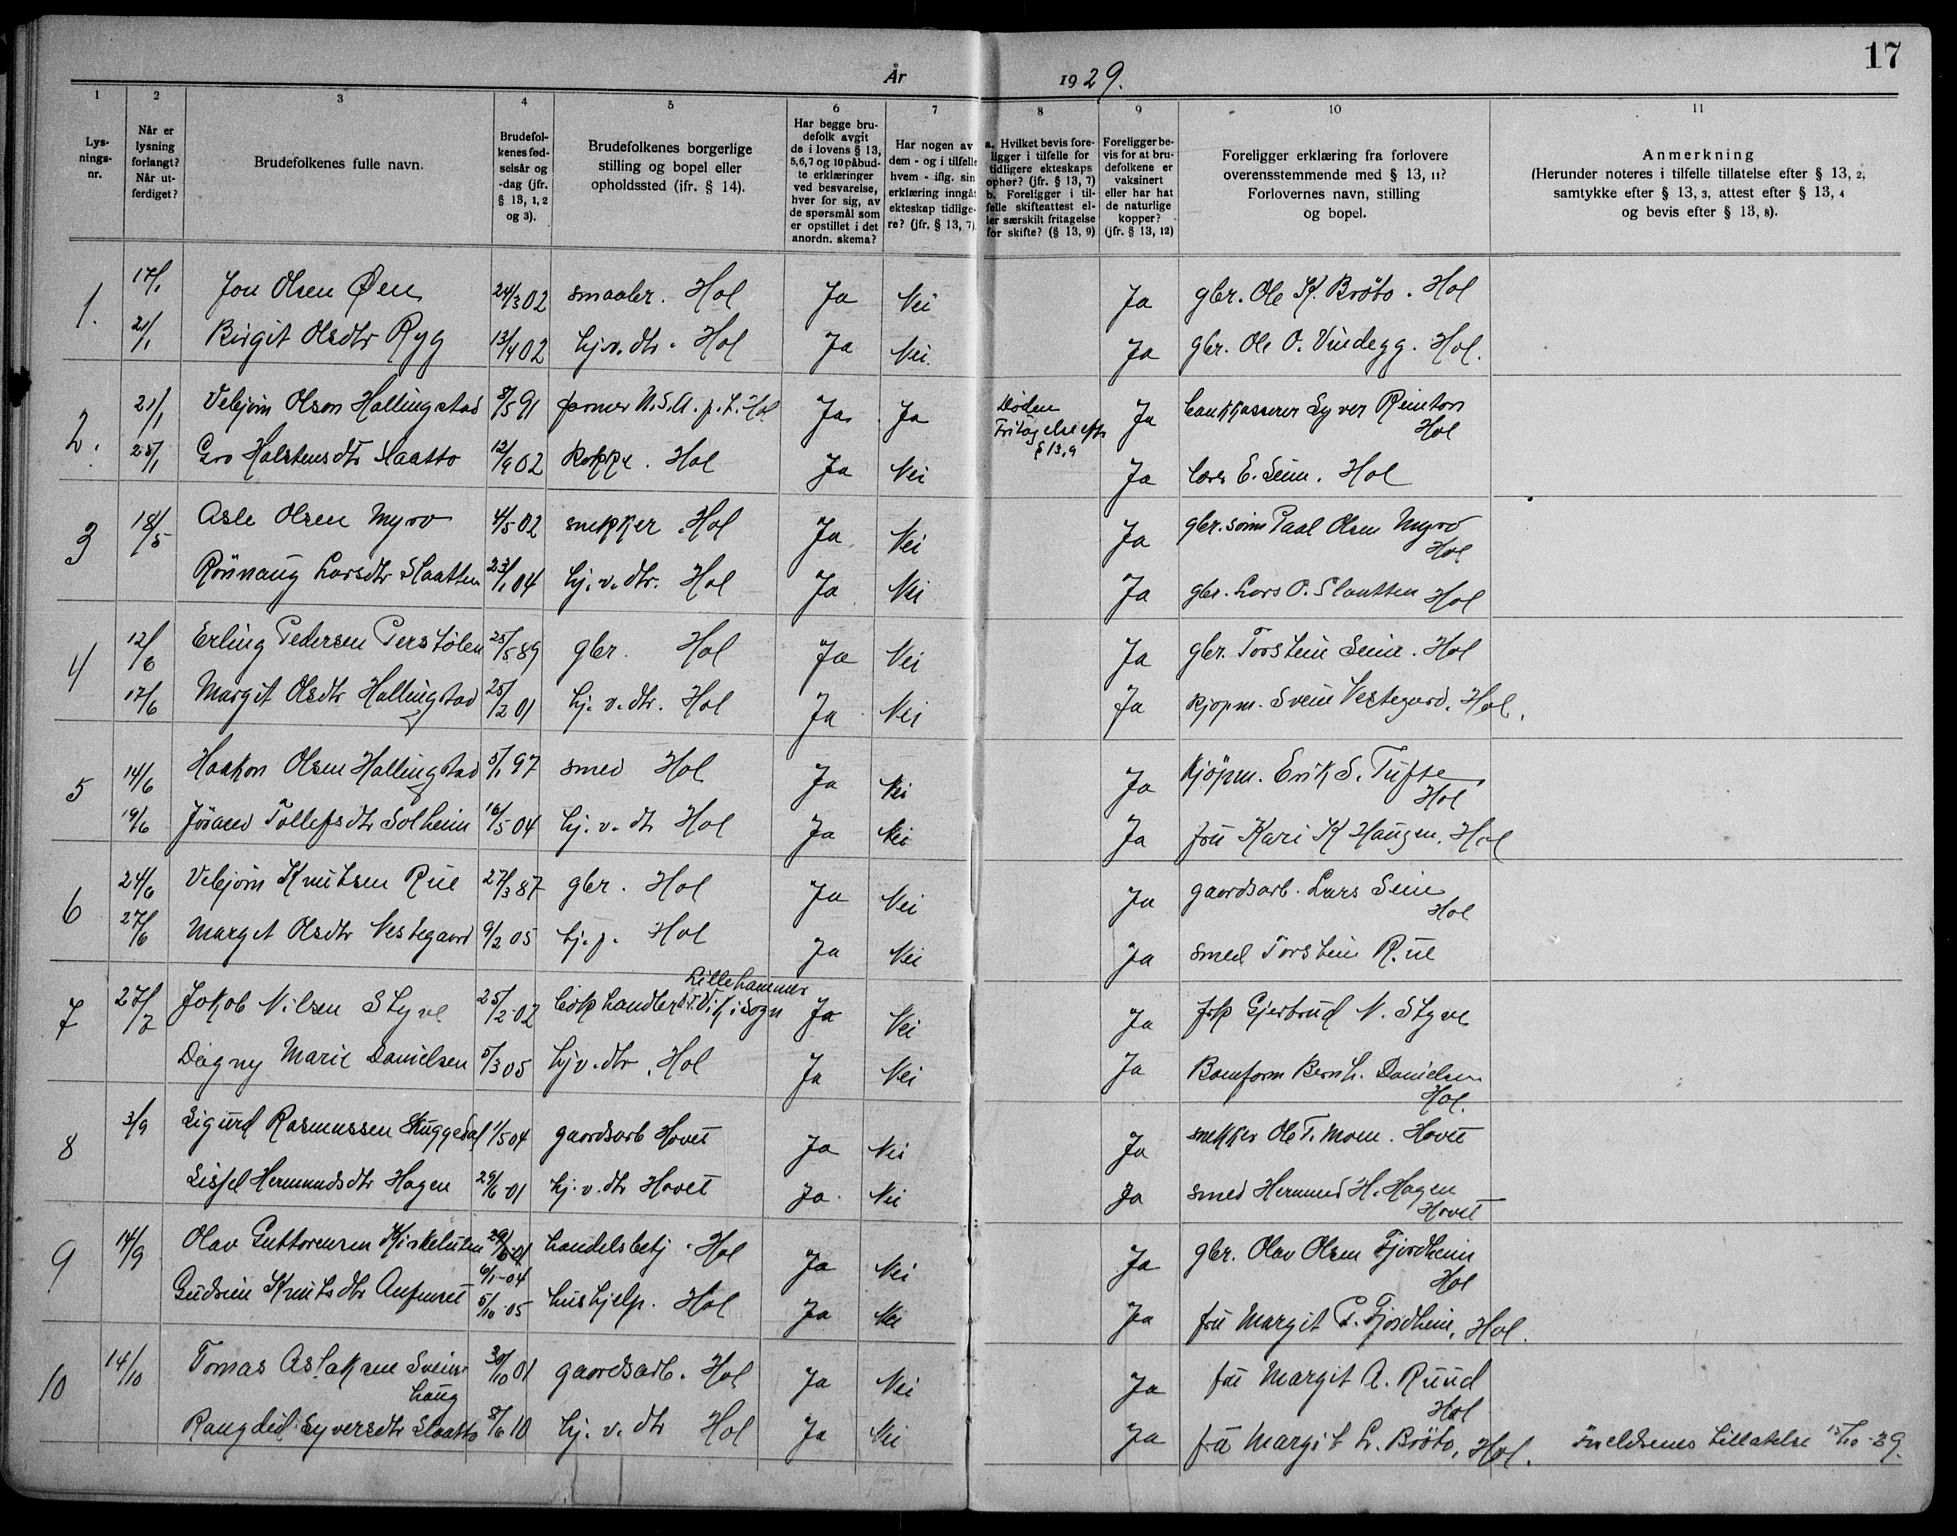 17
År 1929.
1 2 3 4 5 6 7 8 9 10 11
Lys-
nings-
nr.
Når er
lysning
forlangt?
Når ut-
ferdiget?
Brudefolkenes fulle navn.
Brudefol-
kenes fød-
selsår og
-dag (jfr.
§ 13, 1, 2
og 3).
Brudefolkenes borgerlige
stilling og bopel eller
opholdssted (ifr. § 14).
Har begge bru-
defolk avgit
de i lovens § 13,
5,6,7 og 10 påbud-
te erklæringer
ved besvarelse,
hver for sig, av
de spørsmål som
er opstillet i det
anordn. skema?
Har nogen av
dem - og i tilfelle
hvem - iflg. sin
erklæring inngåt
ekteskap tidlige-
re? (jfr. § 13, 7)
a. Hvilket bevis fore-
ligger i tilfelle for
tidligere ekteskaps
ophør? (jfr. § 13, 7)
b. Foreligger i til-
felle skifteattest el-
ler særskilt fritagelse
for skifte? (§ 13, 9)
Foreligger be-
vis for at bru-
defolkene er
vaksinert
eller har hat
de naturlige
kopper?
(jfr. § 13, 12)
Foreligger erklæring fra forlovere
overensstemmende med § 13, 11?
Forlovernes navn, stilling
og bopel.
Anmerkning
(Herunder noteres i tilfelle tillatelse efter § 13, 2,
samtykke efter § 13, 3, attest efter § 13, 4
og bevis efter § 13, 8).
1. 17/1 Jon Olsen Øen 24/3 02 smaabr. Hol Ja Nei Ja gbr. Ole K. Brøto. Hol
21/1 Birgit Olsdtr Ryg 13/4 02 hj.v.dtr. Hol Ja Nei. Ja gbr. Ole O. Vindegg. Hol.
2. 21/1 Vebjørn Olson Hallingstad 8/5 91 farmer U.S.A. p.t. Hol Ja Ja Døden Ja bankkasserer Syver Reinton
Fritagelse eft. Hol
§ 13,9
25/1 Gro Halstensdtr Slaatto 12/9 02 kokke. Hol Ja Nei Ja Lars E. Seim. Hol
3 18/5 Asle Olsen Myro 4/5 02 snekker. Hol Ja Nei Ja gbr.sønn Paal Olsen Myro
Hol
Rønnaug Larsdtr Slaatten 23/1 04 hj.v.dtr. Hol Ja Nei Ja gbr. Lars O. Slaatten Hol
4 12/6 Erling Pedersen Perstølen 25/5 89 gbr. Hol Ja Nei Ja gbr. Torstein Seim. Hol
17/6 Margit Olsdtr Hallingstad 25/2 01 hj.v.dtr. Hol Ja Nei Ja kjøpm. Svein Vestegard. Hol.
5 14/6 Haakon Olsen Hallingstad 5/1 97 smed Hol Ja Nei Ja kjøpm. Erik S. Tufte
Hol
19/6 Jørand Tollefsdtr Solheim 16/5 04 hj.v.dtr Hol Ja Nei Ja fru Kari K Haugen. Hol
6 24/6 Vebjørn Knutsen Rue 27/3 87 gbr. Hol Ja Nei Ja gaardsarb. Lars Seim
Hol
27/6 Marget Olsdtr Vestegaard 9/2 05 hj.p. Hol Ja Nei Ja smed Torstein Rue
Lillehammer
7 27/7 Jakob Nilsen Styve 25/2-02 bokhandler Vik i Sogn Ja Nei Ja frk Gjertrud N. Styve
Dagny Marie Danielsen 5/3 05 hjv.dtr. Hol Ja Nei Ja Baneform Bernh. Danielsen
Hol.
8 3/9 Sigurd Rasmussen Skuggedal 1/5 04 gaardsarb Hovet Ja Nei Ja snekker Ole T. Moen. Hovet
Sissel Hermundsdtr Hagen 29/6-01 hj.v.dtr Hovet Ja Nei Ja smed Hermund H. Hagen
Hovet
9 14/9 Olav Guttormsen Kirkeluten 29/6-01 handelsbetj. Hol Ja Nei Ja gbr. Olav Olsen Fjordheim
6/1-04 Hol
Gudrun Knutsdtr Aufinset 5/10-05 hushjelp. Hol Ja Nei Ja fru Margit P. Fjordheim, Hol.
10 14/10 Tomas Aslaksen Svein- 30/10 01 gaardsarb. Hol Ja Nei Ja fru Margit A. Ruud
haug Hol
Rangdid Syversdtr Slaatto 8/6 10 hj.v.dtr Hol Ja Nei Ja fru Margit L. Brøto, Hol. foreldrenes tillatelse 15/10-29.